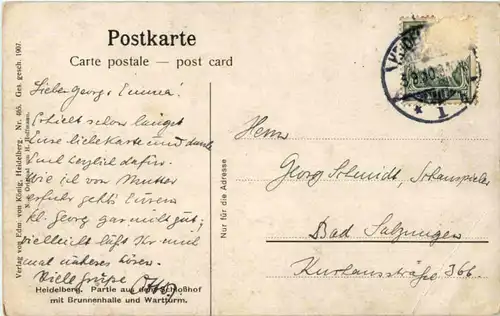 Postkarte
Carte postale — post card
Lieber Georg & Emma!
Erhielt schon längst
Eure liebe Karte und danke
Euch herzlich dafür.
Wie ich von Mutter
erfuhr geht's Eurem
kl. Georg gar nicht gut;
vielleicht laßt Ihr mich
mal näheres hören.
Viele Grüße Otto
Heidelberg. Partie aus dem Schloßhof
mit Brunnenhalle und Wartturm.
Verlag von Edm. von König, Heidelberg. Nr. 465. Ges. gesch. 1907.
H. Hoffmann.
Nur für die Adresse
Herrn
Georg Schmidt, Schauspieler
Bad Salzungen
Kurhausstraße 366